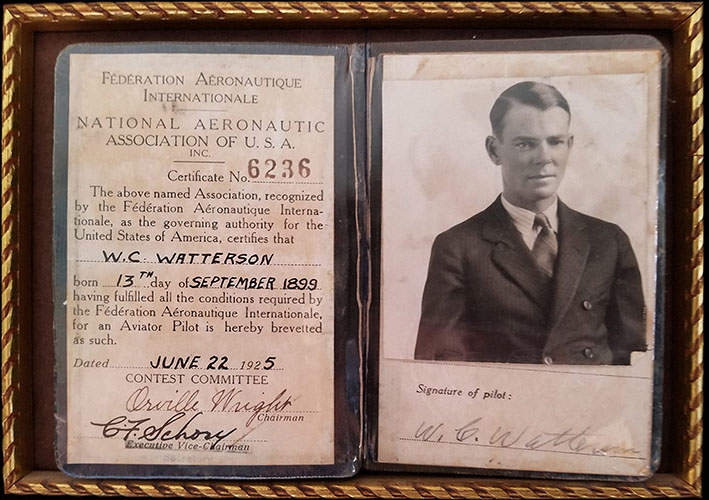 FÉDÉRATION AÉRONAUTIQUE
INTERNATIONALE
NATIONAL AERONAUTIC
ASSOCIATION OF U. S. A.
INC.
Certificate No. 6236
The above named Association, recognized
by the Fédération Aéronautique Interna-
tionale, as the governing authority for the
United States of America, certifies that
W.C. WATTERSON
born 13TH day of SEPTEMBER 1899
having fulfilled all the conditions required by
the Fédération Aéronautique Internationale,
for an Aviator Pilot is hereby brevetted
as such.
Dated JUNE 22 1925
CONTEST COMMITTEE
Orville Wright
Chairman
C F Schory
Executive Vice-Chairman
Signature of pilot:
W. C. Watterson